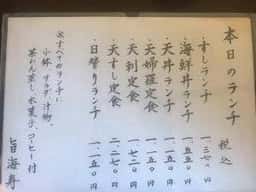 本日のランチ
税込
・すしランチ 一、三七〇円
・海鮮丼ランチ 一、五五〇円
・天丼ランチ 一、一五〇円
・天婦羅定食 一、一五〇円
・天刺定食 一、七二〇円
・天すし定食 二、二七〇円
・日替りランチ 一、一五〇円
※すべてのランチに
小鉢 サラダ 汁物、
茶わん蒸し、水菓子、コーヒー付
旨海寿